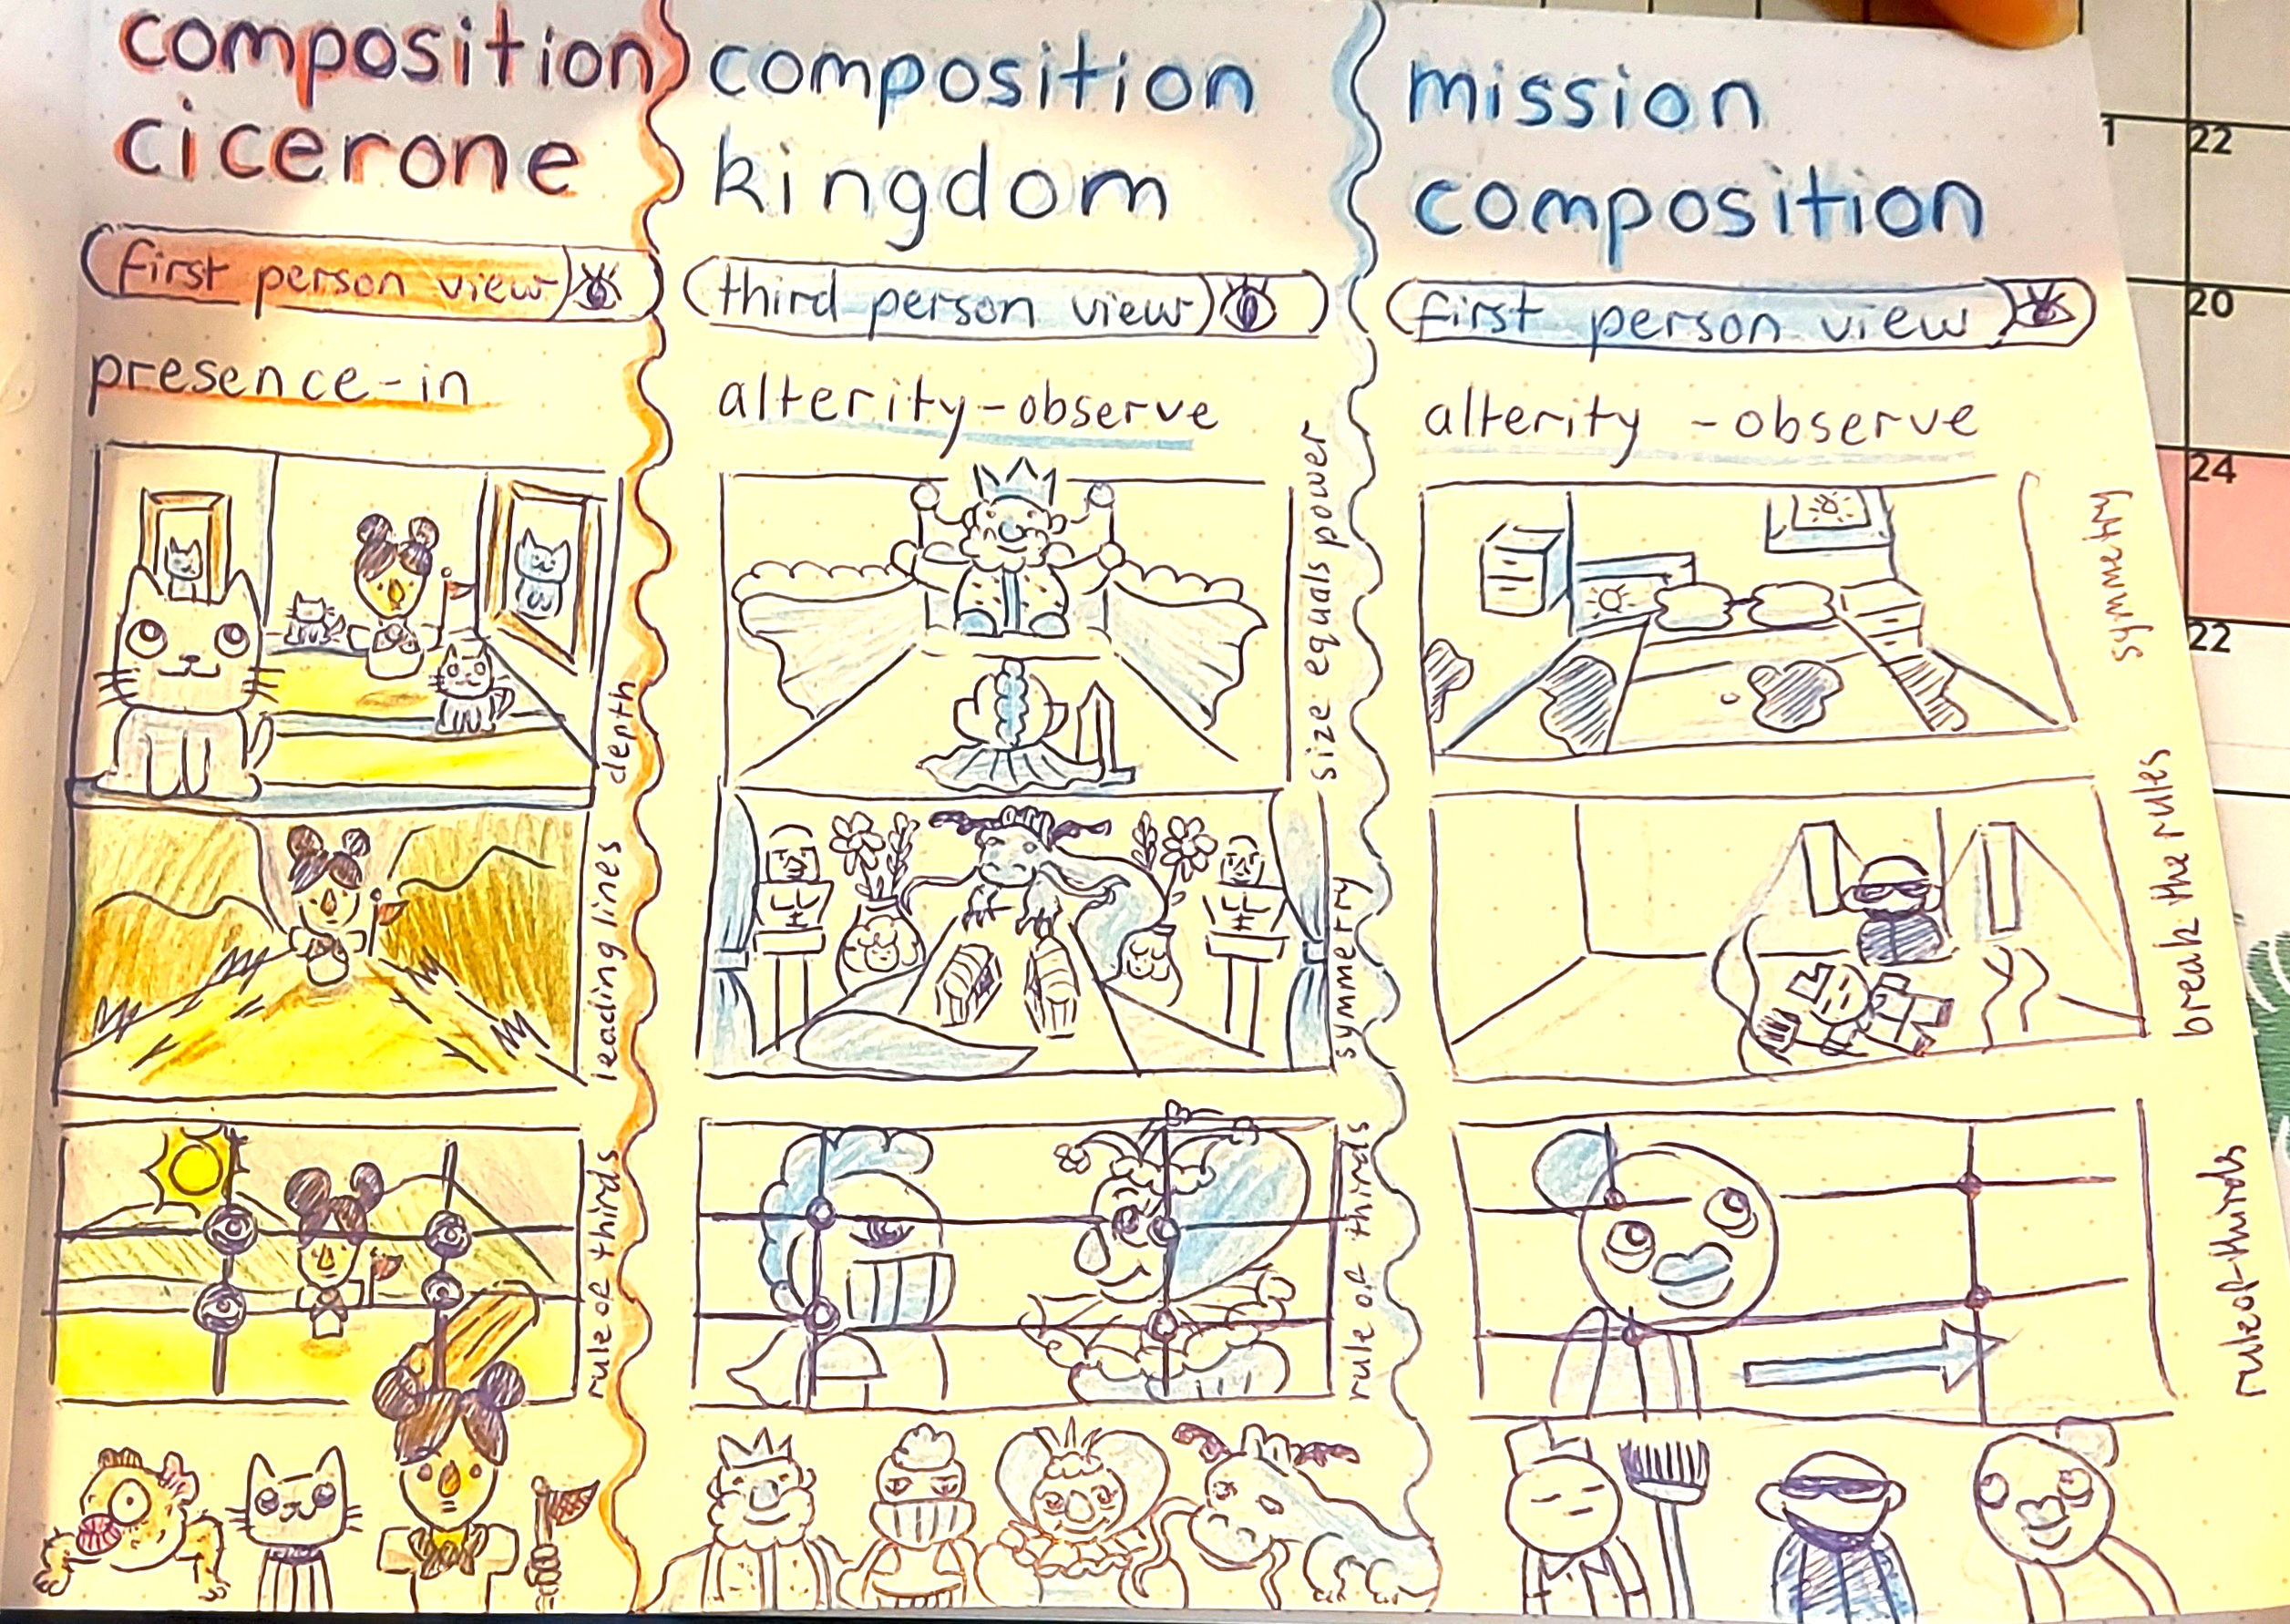 composition
cicerone
first person view
presence-in
depth
leading lines
rule of thirds
composition
kingdom
third person view
alterity-observe
size equals power
symmetry
rule of thirds
mission
composition
first person view
alterity -observe
symmetry
break the rules
rule of thirds
1
22
20
24
22